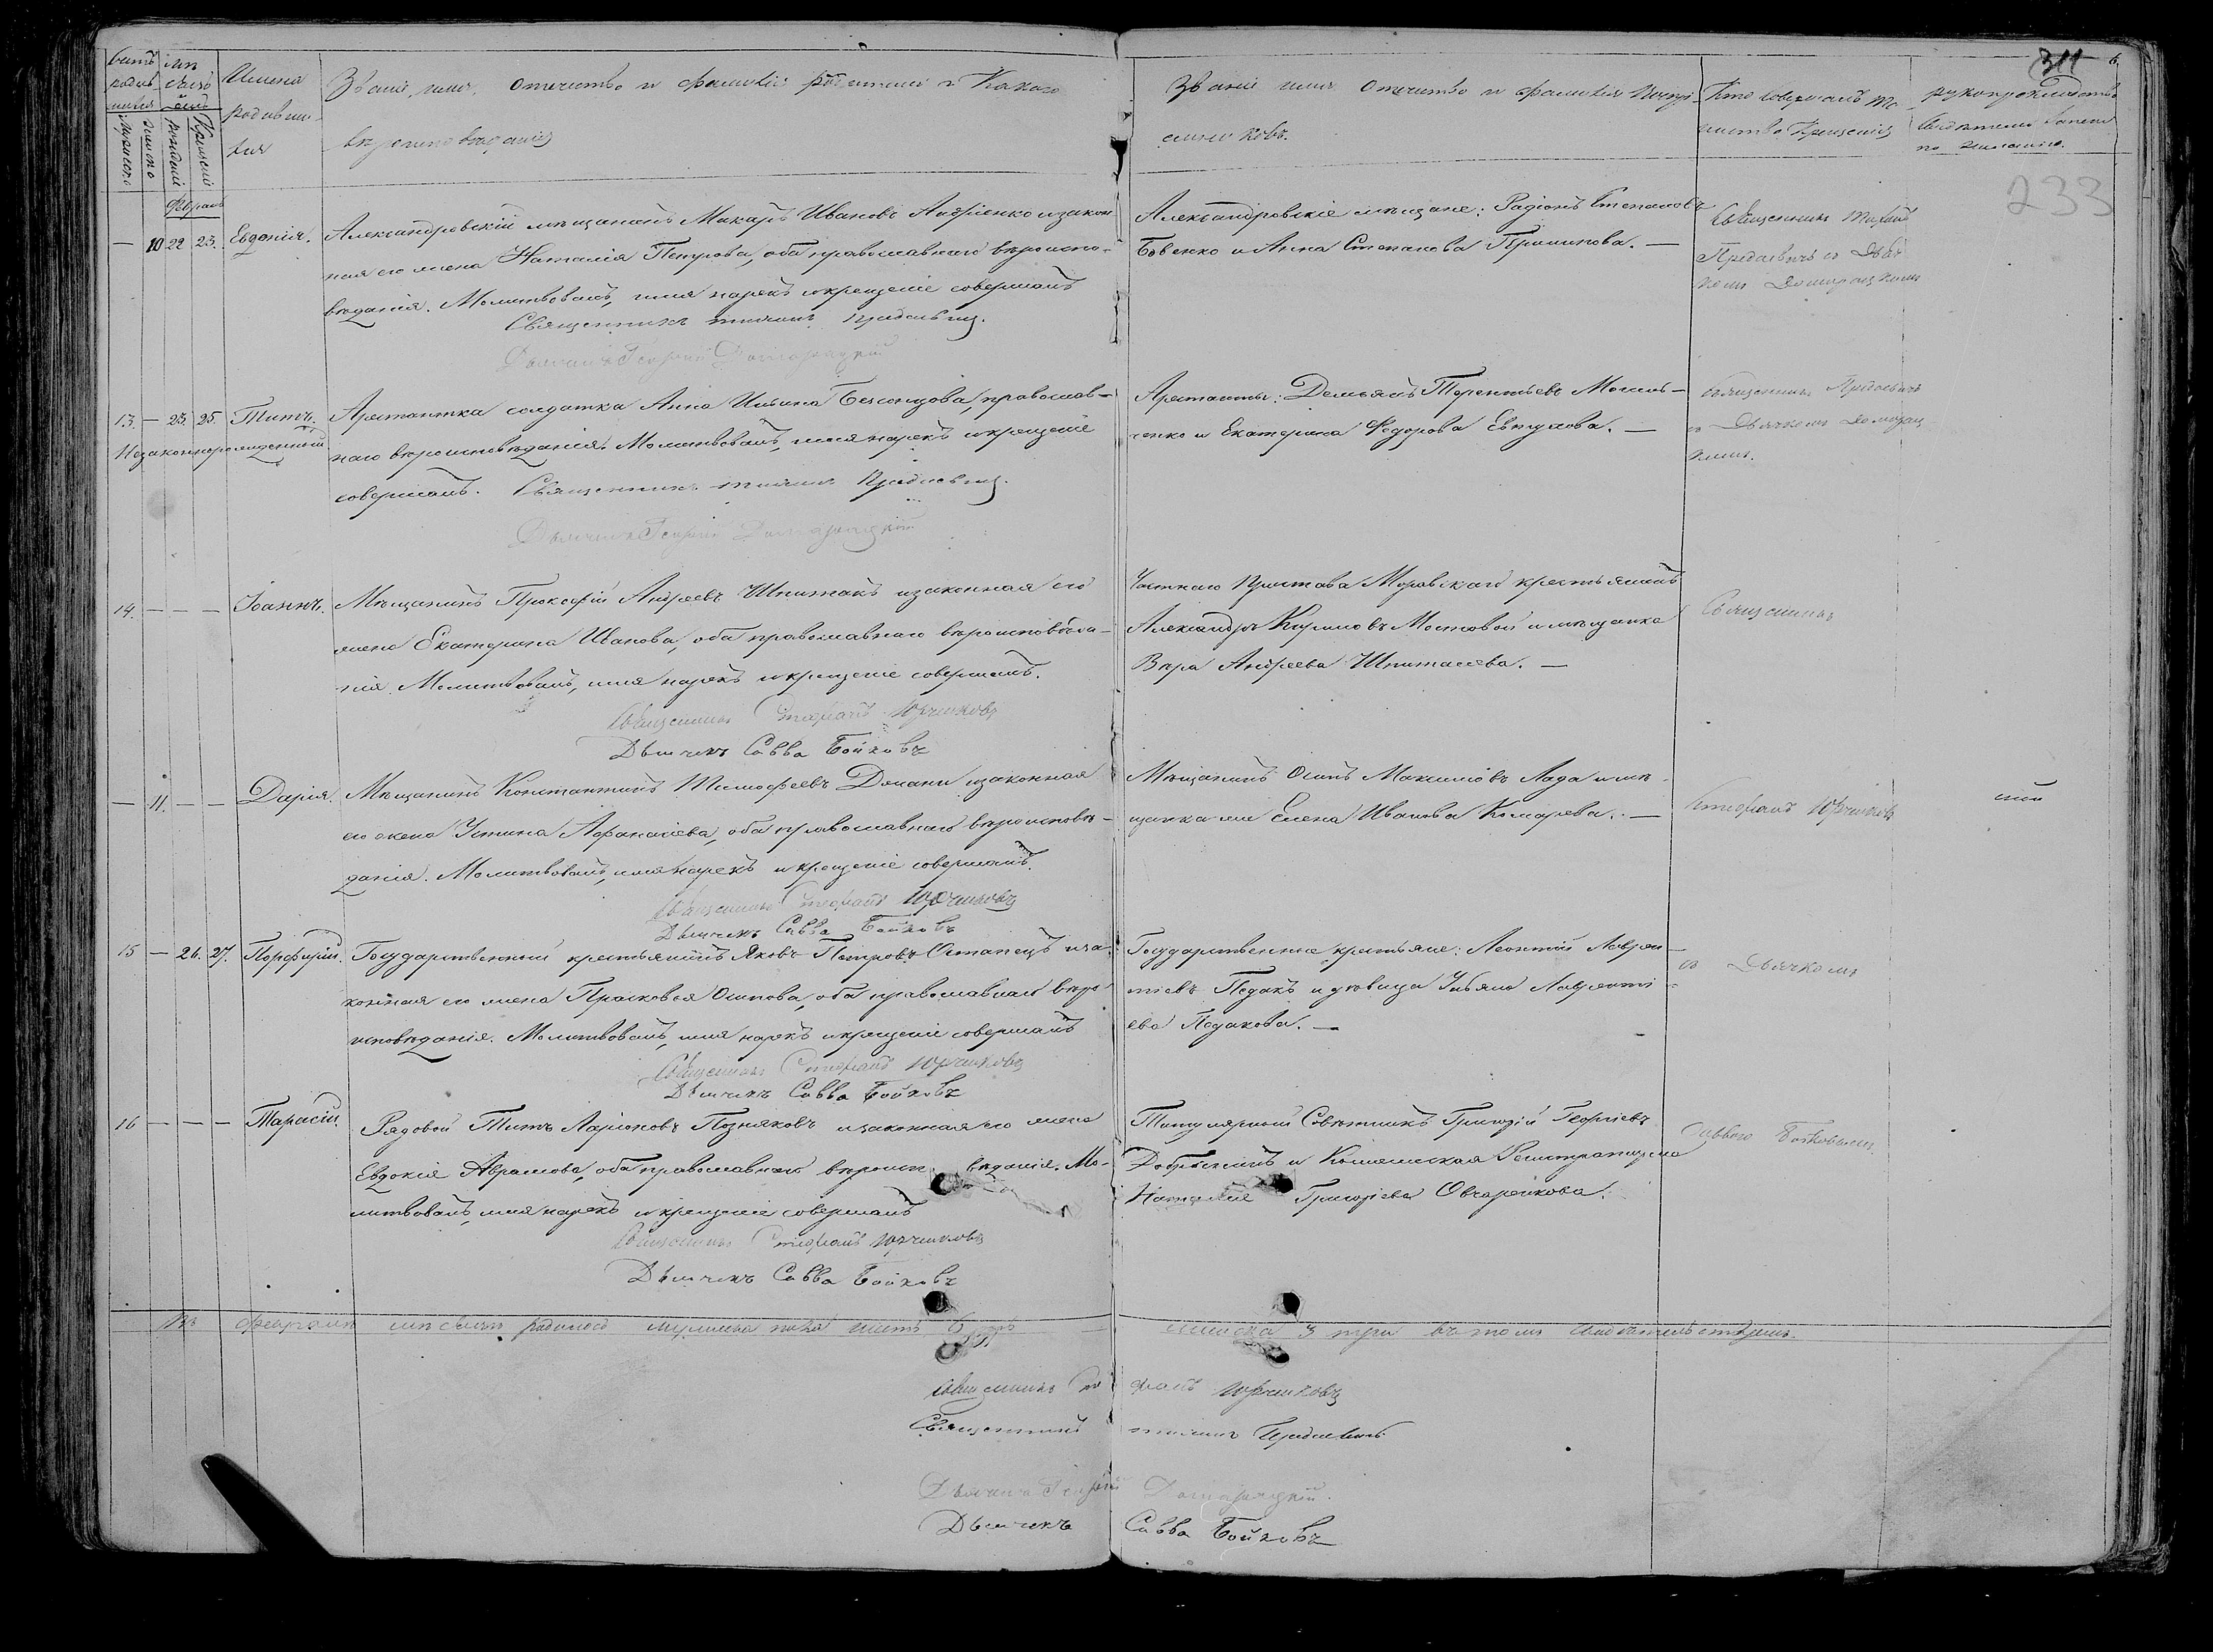 311
6.
233
Имена
родивших
Званіе, имя, отчество и фамилія родителей и какого
вероисповеданія
Званіе имя отчество и фамилія воспрі-
емниковъ.
Кто совершалъ та-
инство крещенія
рукоприкладство
свидетелей записи
по желанію.
Мужеска
женска
рожденія
крещенія
Февраль
— 10 22 23. Евдокія.
Александровскій мѣщанинъ Макаръ Ивановъ Андріенко и закон
ная его жена Наталія Петрова, оба православнаго вѣроиспо-
вѣданія. Молитвовалъ, имя нарекъ и крещеніе совершалъ
Священникъ
Дьячекъ Георгій Домарацкій
Александровскіе мѣщане: Радіонъ Степановъ
Бовенко и Анна Степанова
Священникъ
13. — 23. 25. Титъ.
Незаконнорожденный
Арестантка солдатка Анна Ильина православ-
наго вѣроисповѣданія. Молитвовалъ, имя нарекъ и крещеніе
совершалъ. Священникъ
Дьячекъ Георгій Домарацкій
Арестанты: Демьянъ Терентьевъ
и Екатерина Федорова
Священникъ
съ Дьячкомъ
14. — — — Іоаннъ.
Мѣщанинъ Прокофій Андреевъ Шпитакъ и законная его
жена Екатерина Иванова, оба православнаго вѣроисповѣда-
нія. Молитвовалъ, имя нарекъ и крещеніе совершалъ.
Священникъ Стефанъ Юрченковъ
Дьячекъ Савва Бойковъ
Частнаго Пристава Моравскаго крестьянинъ
Александръ Кириловъ Мостовой и мѣщанка
Вѣра Андреева
Священникъ
— 11. — — Дарія.
Мѣщанинъ Константинъ Тимофеевъ и законная
его жена Устина Афанасіева, оба православнаго вѣроисповѣ-
данія. Молитвовалъ, имя нарекъ и крещеніе совершалъ.
Священникъ Стефанъ Юрченковъ
Дьячекъ Савва Бойковъ
Мѣщанинъ Осипъ Максимовъ Лада и мѣ-
щанка Елена Иванова Комарева. —
Стефанъ Юрченковъ
15 — 26. 27. Порфирій.
Государственный крестьянинъ Яковъ Петровъ Остапецъ и за-
конная его жена Прасковья Осипова, оба православнаго вѣро-
исповѣданія. Молитвовалъ, имя нарекъ и крещеніе совершалъ
Священникъ Стефанъ Юрченковъ
Дьячекъ Савва Бойковъ
Государственные крестьяне: Леонтій Лаврен-
тіевъ Педакъ и дѣвица Ульяна Лавренті-
ева Педакова. —
съ Дьячкомъ
16 — — — Тарасій.
Рядовой Титъ Ларіоновъ Позняковъ и законная его жена
Евдокія Абрамова, оба православнаго вѣроисп вѣданія. Мо-
литвовалъ, имя нарекъ и крещеніе совершалъ
Священникъ Стефанъ Юрченковъ
Дьячекъ Савва Бойковъ
Титулярный Совѣтникъ Григорій Георгіевъ
и Регистраторша
Наталія Григорьева Овчаренкова.
Саввою Бойковымъ
Въ Февралѣ мѣсяцѣ родилось мужеска пола шесть 6
женска 3 три въ томъ свидѣтельствуемъ.
Священникъ Стефанъ Юрченковъ
Священникъ
Дьячекъ Георгій Домарацкій.
Дьячекъ Савва Бойковъ